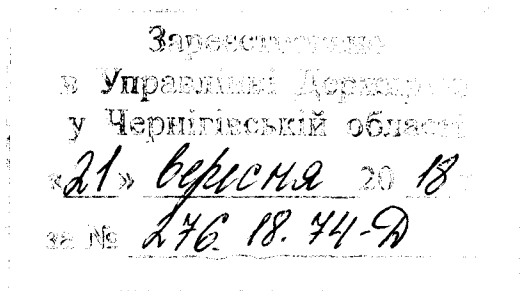 Зареєстровано
в Управлінні Держпраці
у Чернігівській області
«21» вересня 2018
за № 276.18.74-Д